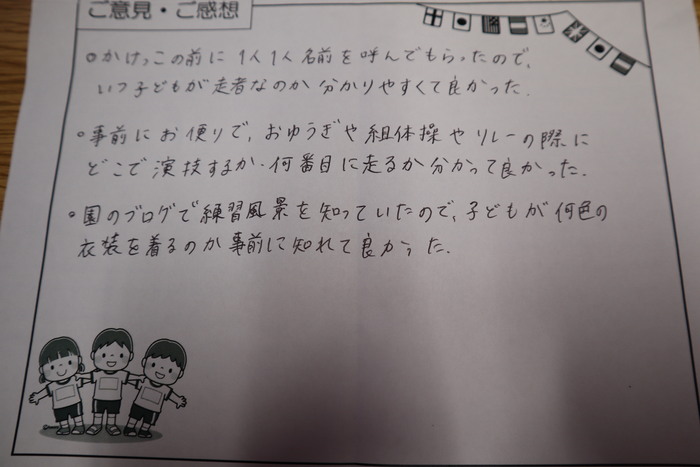 ご意見・ご感想
○かけっこの前に1人1人名前を呼んでもらったので、
いつ子どもが走者なのか分かりやすくて良かった.
○事前にお便りで、おゆうぎや組体操やリレーの際に
どこで演技するか・何番目に走るか分かって良かった.
○園のブログで練習風景を知っていたので、子どもが何色の
衣装を着るのか事前に知れて良かった.